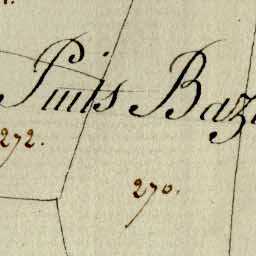 Puits Baz
272.
270.